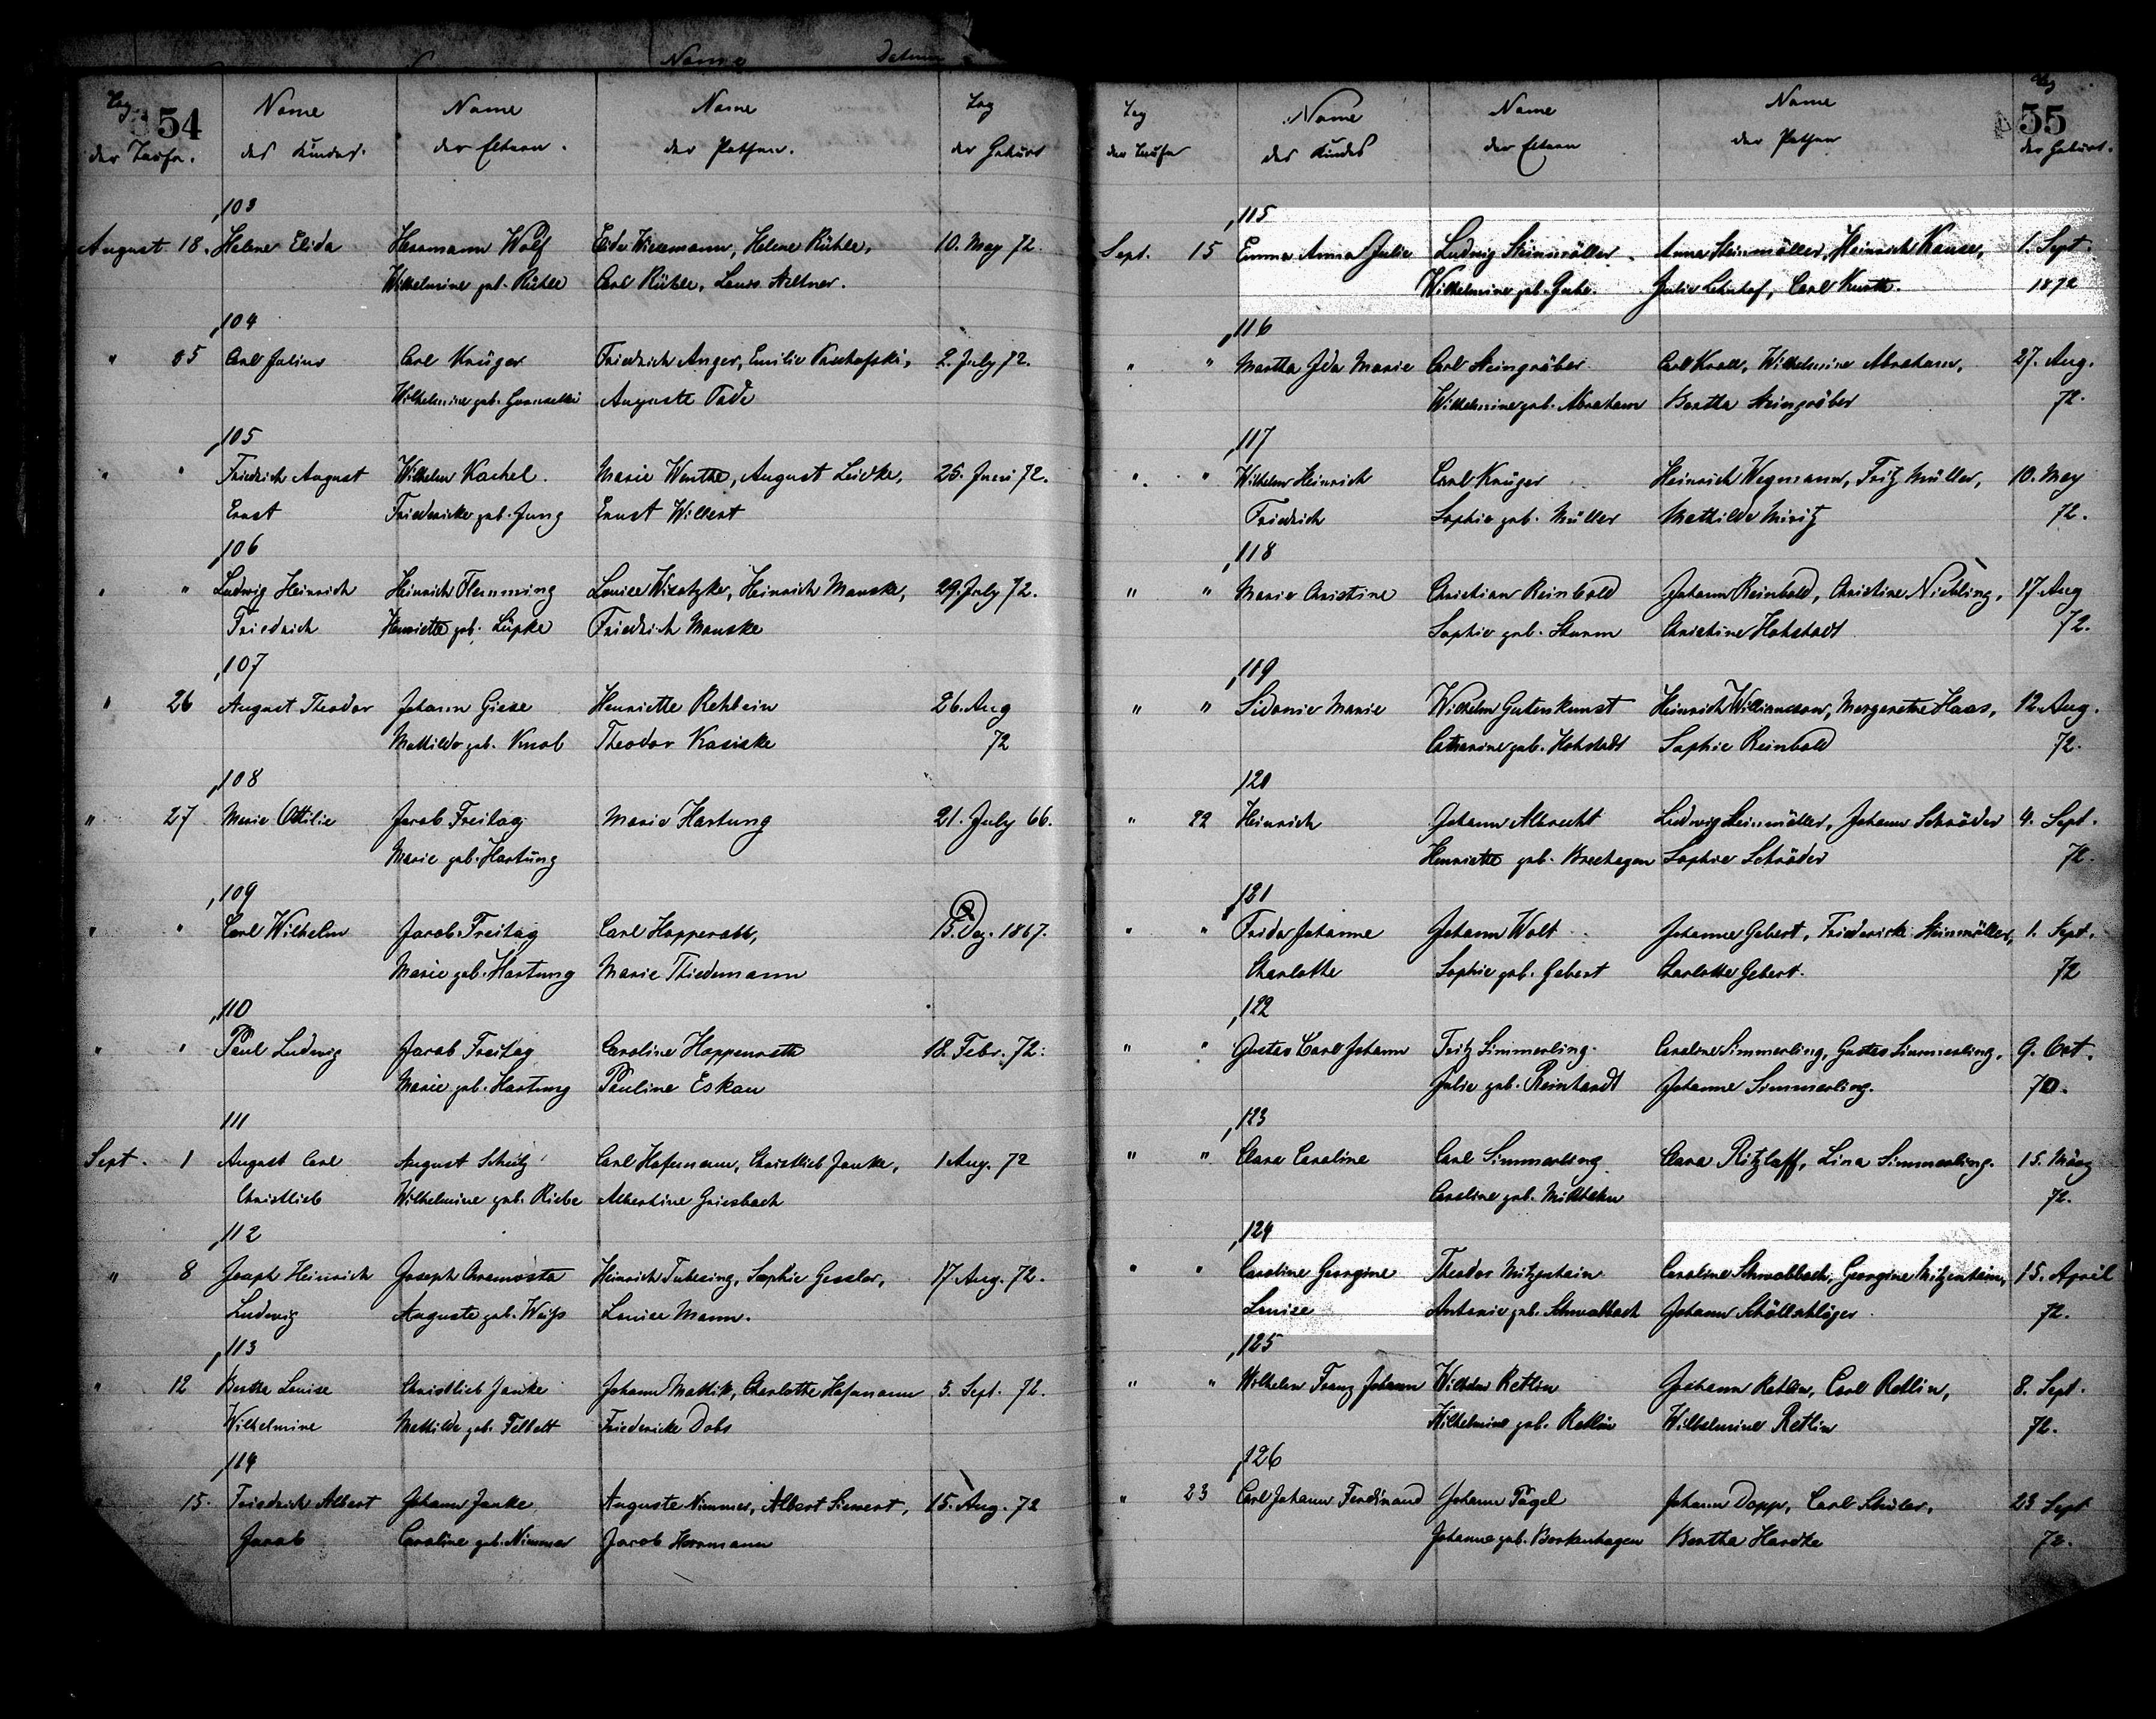 Name Datum
Tag 54 Name Name Name Tag
der Taufe. des Kindes. der Eltern. der Pathen. der Geburt
103
August 18. Helene Elida Hermann Wolf Elida Wiesemann, Helene Rühle, 10. May 72.
Wilhelmine geb. Rühle Carl Rühle, Louis Aeltner.
104
" Carl Julius Carl Krüger Friedrich Anger, Emilie 2. July 72.
Wilhelmine geb. Auguste Tade
105
" " Friedrich August Wilhelm Kachel. Marie Wenthe, August Leidke, 25. Juni 72.
Ernst Friedericke geb. Jung Ernst Willert
106
" " Ludwig Heinrich Heinrich Flemming Louise Wisotzke, Heinrich Manske, 29. July 72.
Friedrich Henriette geb. Lüpke Friedrich Manske
107
" 26 August Theodor Johann Giese Henriette Rehbein 26. Aug
Mathilde geb. Knob Theodor Kasiske 72
108
" 27 Marie Ottilie Jacob Freitag Marie Hartung 21. July 66.
Marie geb. Hartung
109
" " Carl Wilhelm Jacob Freitag Carl Hopperath, 15. Dez. 1867.
Marie geb. Hartung Marie Thiedemann
110
" " Paul Ludwig Jacob Freitag Caroline Hoppenrath 18. Febr. 72.
Marie geb. Hartung Pauline Eskau
111
Sept. 1 August Carl August Schulz Carl Hofmann, Christlieb Janke, 1 Aug. 72
Christlieb Wilhelmine geb. Riebe Albertine Griesbach
112
" 8 Joseph Heinrich Joseph Heinrich Tubesing, Sophie Gessler, 17 Aug. 72.
Ludwig Auguste geb. Weiß Louise Mann.
113
" 12 Bertha Louise Christlieb Janke Johann Mattik, Charlotte Hofmann 5. Sept. 72.
Wilhelmine Mathilde geb. Felbett Friedericke Dobs
114
" 15. Friedrich Albert Johann Janke Auguste Nimmer, Albert Siewert, 15. Aug. 72
Jacob Caroline geb. Nimmer Jacob Herrmann
Tag Name Name Name Tag 55
der Taufe des Kindes der Eltern der Pathen der Geburt.
115
Sept. 15 Emma Anna Julie Ludwig Steinmöller Anna Steinmöller, Heinrich Kause, 1. Sept.
Wilhelmine geb. Julie Lehnhof, Carl Kurth. 1872
116
" " Martha Ida Marie Carl Steingräber Carl Kroll, Wilhelmine Abraham, 27. Aug.
Wilhelmine geb. Abraham Bertha Steingräber 72.
117
" " Wilhelm Heinrich Carl Krüger Heinrich Wegmann, Fritz Müller, 10. May
Friedrich Sophie geb. Müller Mathilde Miritz 72.
118
" " Marie Christine Christian Reinbold Johann Reinbold, Christine Nichling, 17. Aug
Sophie geb. Sturm Christine Hohstadt 72.
119
" " Sidonie Marie Wilhelm Gutenkunst Heinrich Williamson, Margarethe Haas, 12. Aug.
Catharine geb. Hohstadt Sophie Reinbold 72.
120
" 22 Heinrich Johann Albrecht Ludwig Steinmöller, Johann Schröder 4. Sept.
Henriette geb. Sophie Schröder 72.
121
" " Frida Johanne Johann Wolt Johanne Gebert, Friedericke Steinmöller, 1. Sept.
Charlotte Sophie geb. Gebert Charlotte Gebert. 72
122
" " Gustav Carl Johann Fritz Simmerling Caroline Simmerling, Gustav Simmerling, 9. Oct.
Julie geb. Reinhardt Johanne Simmerling. 70.
123
" " Clara Caroline Carl Simmerling Clara Ritzlaff, Lina Simmerling. 15. März
Caroline geb. 72.
124
" " Caroline Georgine Theodor Mitzenheim Caroline Schwalbach, Georgine Mitzenheim, 15. April
Louise Antonie geb. Schwalbach Johann Schöllschläger 72.
125
" " Wilhelm Franz Johann Wilhelm Retlin Johann Retlin, Carl Retlin, 8. Sept.
Wilhelmine geb. Retlin Wilhelmine Retlin 72.
126
" 23 Carl Johann Ferdinand Johann Pagel Johann Dopp, Carl Schüler, 23 Sept
Johanne geb. Borkenhagen Bertha Hardtke 72.